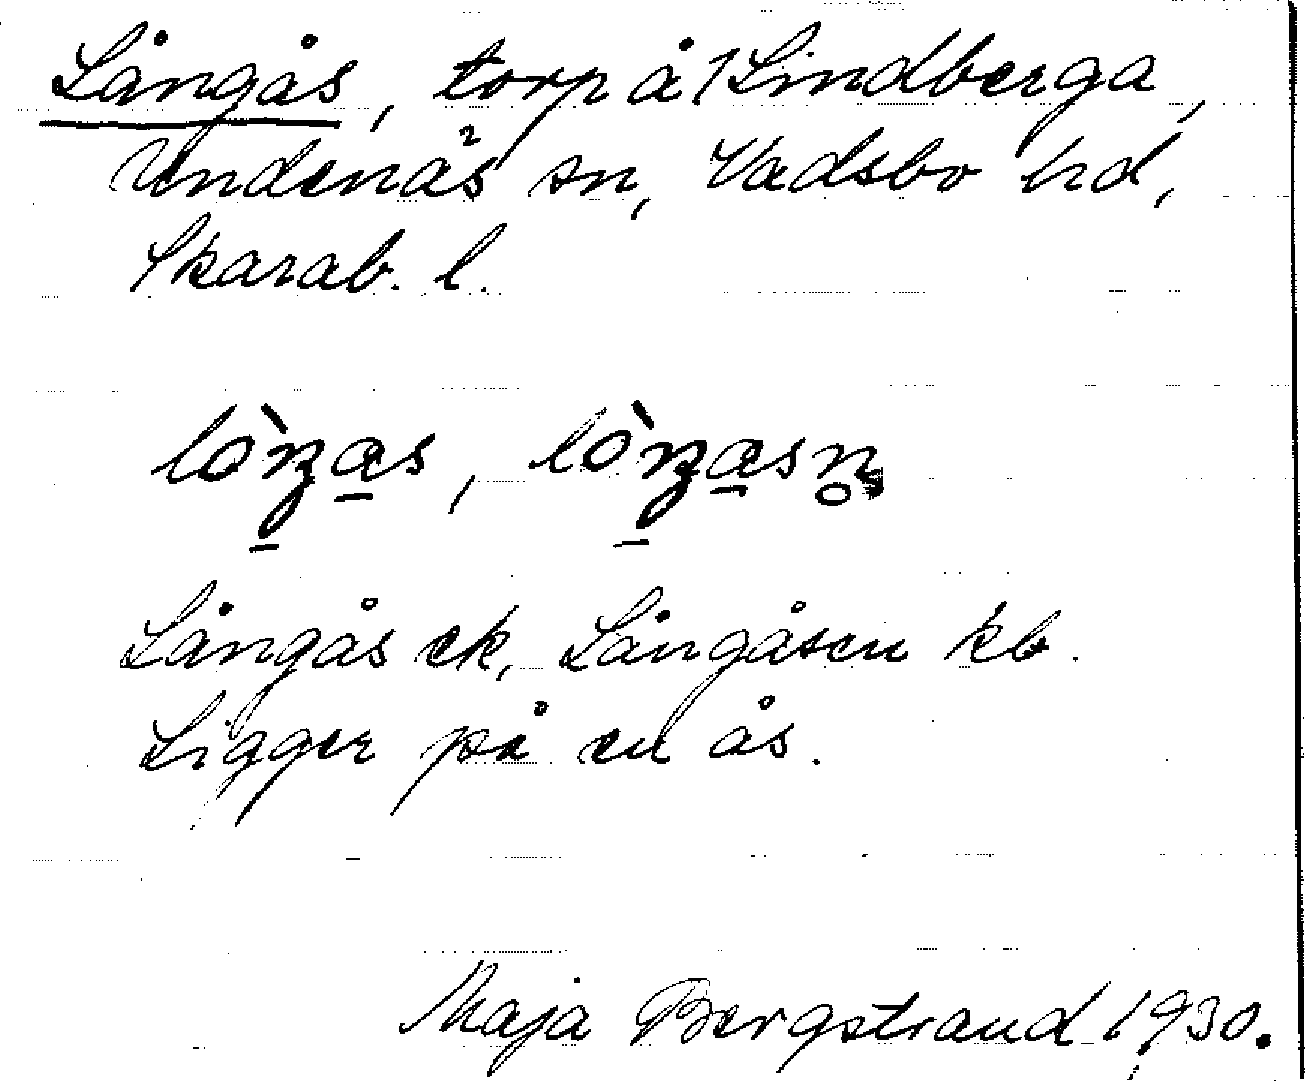 Långås, torp å 1 Lindberga,
Undenäs sn, Vadsbo hd,
Skarab. l.
Långås ek, Långåsen kb.
Ligger på en ås.
Maja Bergstrand 1930.